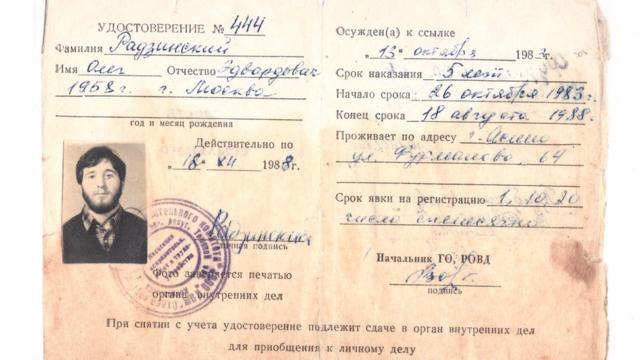 УДОСТОВЕРЕНИЕ № 444
Фамилия Радзинский
Имя Олег Отчество Эдвардович
1958г. г. Москва
год и месяц рождения
Действительно по
„18" XII 1988г.
личная подпись
Фото заверяется печатью
органа внутренних дел
Осужден(а) к ссылке
„13" октября 1983г.
Срок наказания 5 лет
Начало срока 26 октября 1983г.
Конец срока 18 августа 1988г.
Проживает по адресу г. Асино
ул. Фурманова 64
Срок явки на регистрацию 1, 10, 20
число ежемесячно
Начальник ГО, РОВД
подпись
При снятии с учета удостоверение подлежит сдаче в орган внутренних дел
для приобщения к личному делу